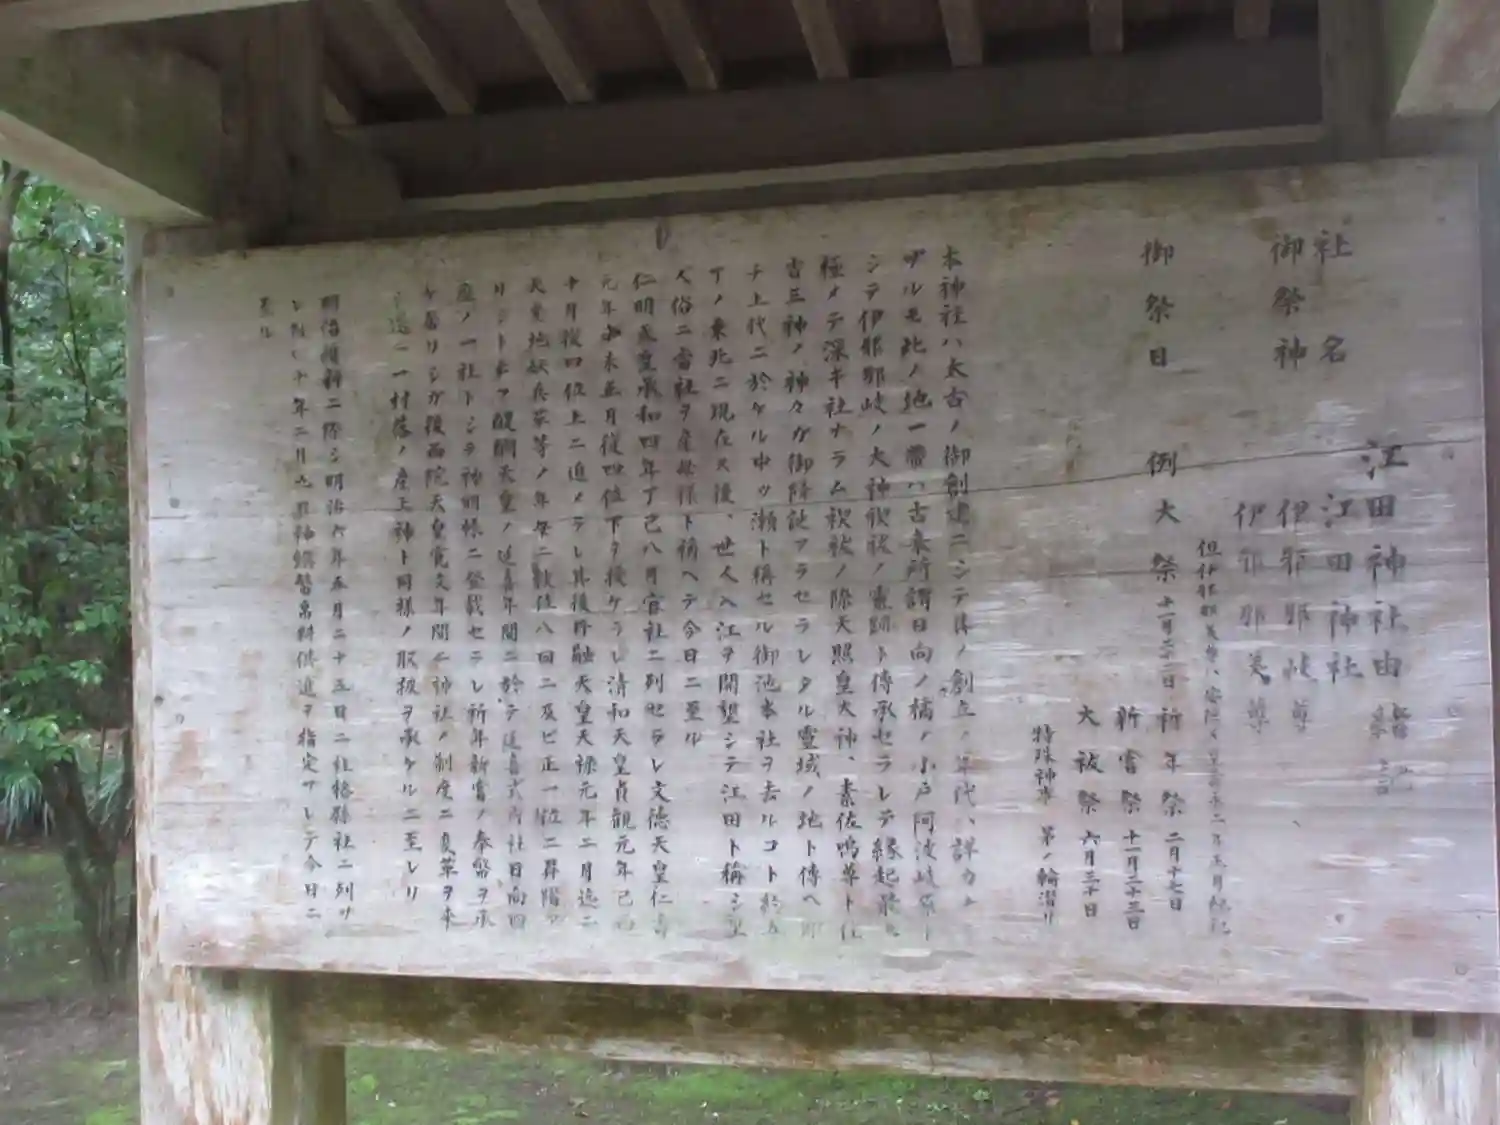 江田神社由緒記
社名 江田神社
御祭神 伊邪那岐尊
伊邪那美尊
但伊邪那美尊ハ安徳天皇壽永二年五月配祀
御祭日 例大祭 祈年祭 二月十七日
新嘗祭 十一月二十三日
大祓祭 六月三十日
特殊神事 茅ノ輪潜リ
本神社ハ太古ノ御創建ニシテ其ノ創立ノ年代ハ詳カナ
ザルモ此ノ地一帶ハ古来所謂日向ノ橘ノ小戸阿波岐原ニ
シテ伊邪那岐ノ大神禊祓ノ霊跡ト傳承セラレテ縁起最モ
極メテ深キ社ナラム禊祓ノ際天照皇大神、素佐嗚尊ト住
吉三神ノ神々ガ御降誕アラセラレタル霊域ノ地ト傳ヘ即
チ上代ニ於ケル中ツ瀬ト稱セル御池本社ヲ去ルコト約五
丁ノ東北ニ現在ス後、世人入江ヲ開墾シテ江田ト稱シ里
人俗ニ當社ヲ産母様ト稱ヘテ今日ニ至ル
仁明天皇承和四年丁巳八月官社ニ列セラレ文德天皇仁壽
元年辛未正月従四位下ヲ授ケラレ清和天皇貞觀元年己卯
十月従四位上ニ進メラレ其後円融天皇天禄元年二月迄ニ
天変地妖兵革等ノ年毎ニ敍位八回ニ及ビ正一位ニ昇階ア
リシト云フ醍醐天皇ノ延喜年間ニ於テ延喜式内社日向四
座ノ一社トシテ神明帳ニ登載セラレ祈年新嘗ノ奉幣ヲ承
ケ居リシガ後西院天皇寛文年間ニ神社ノ制度ニ変革ヲ来
シ遂ニ一村落ノ産土神ト同様ノ取扱ヲ承ケルニ至レリ
明治維新ニ際シ明治六年五月二十五日ニ社格縣社ニ列サ
レ十年二月神饌幣帛料供進ヲ指定アレテ今日ニ
至ル